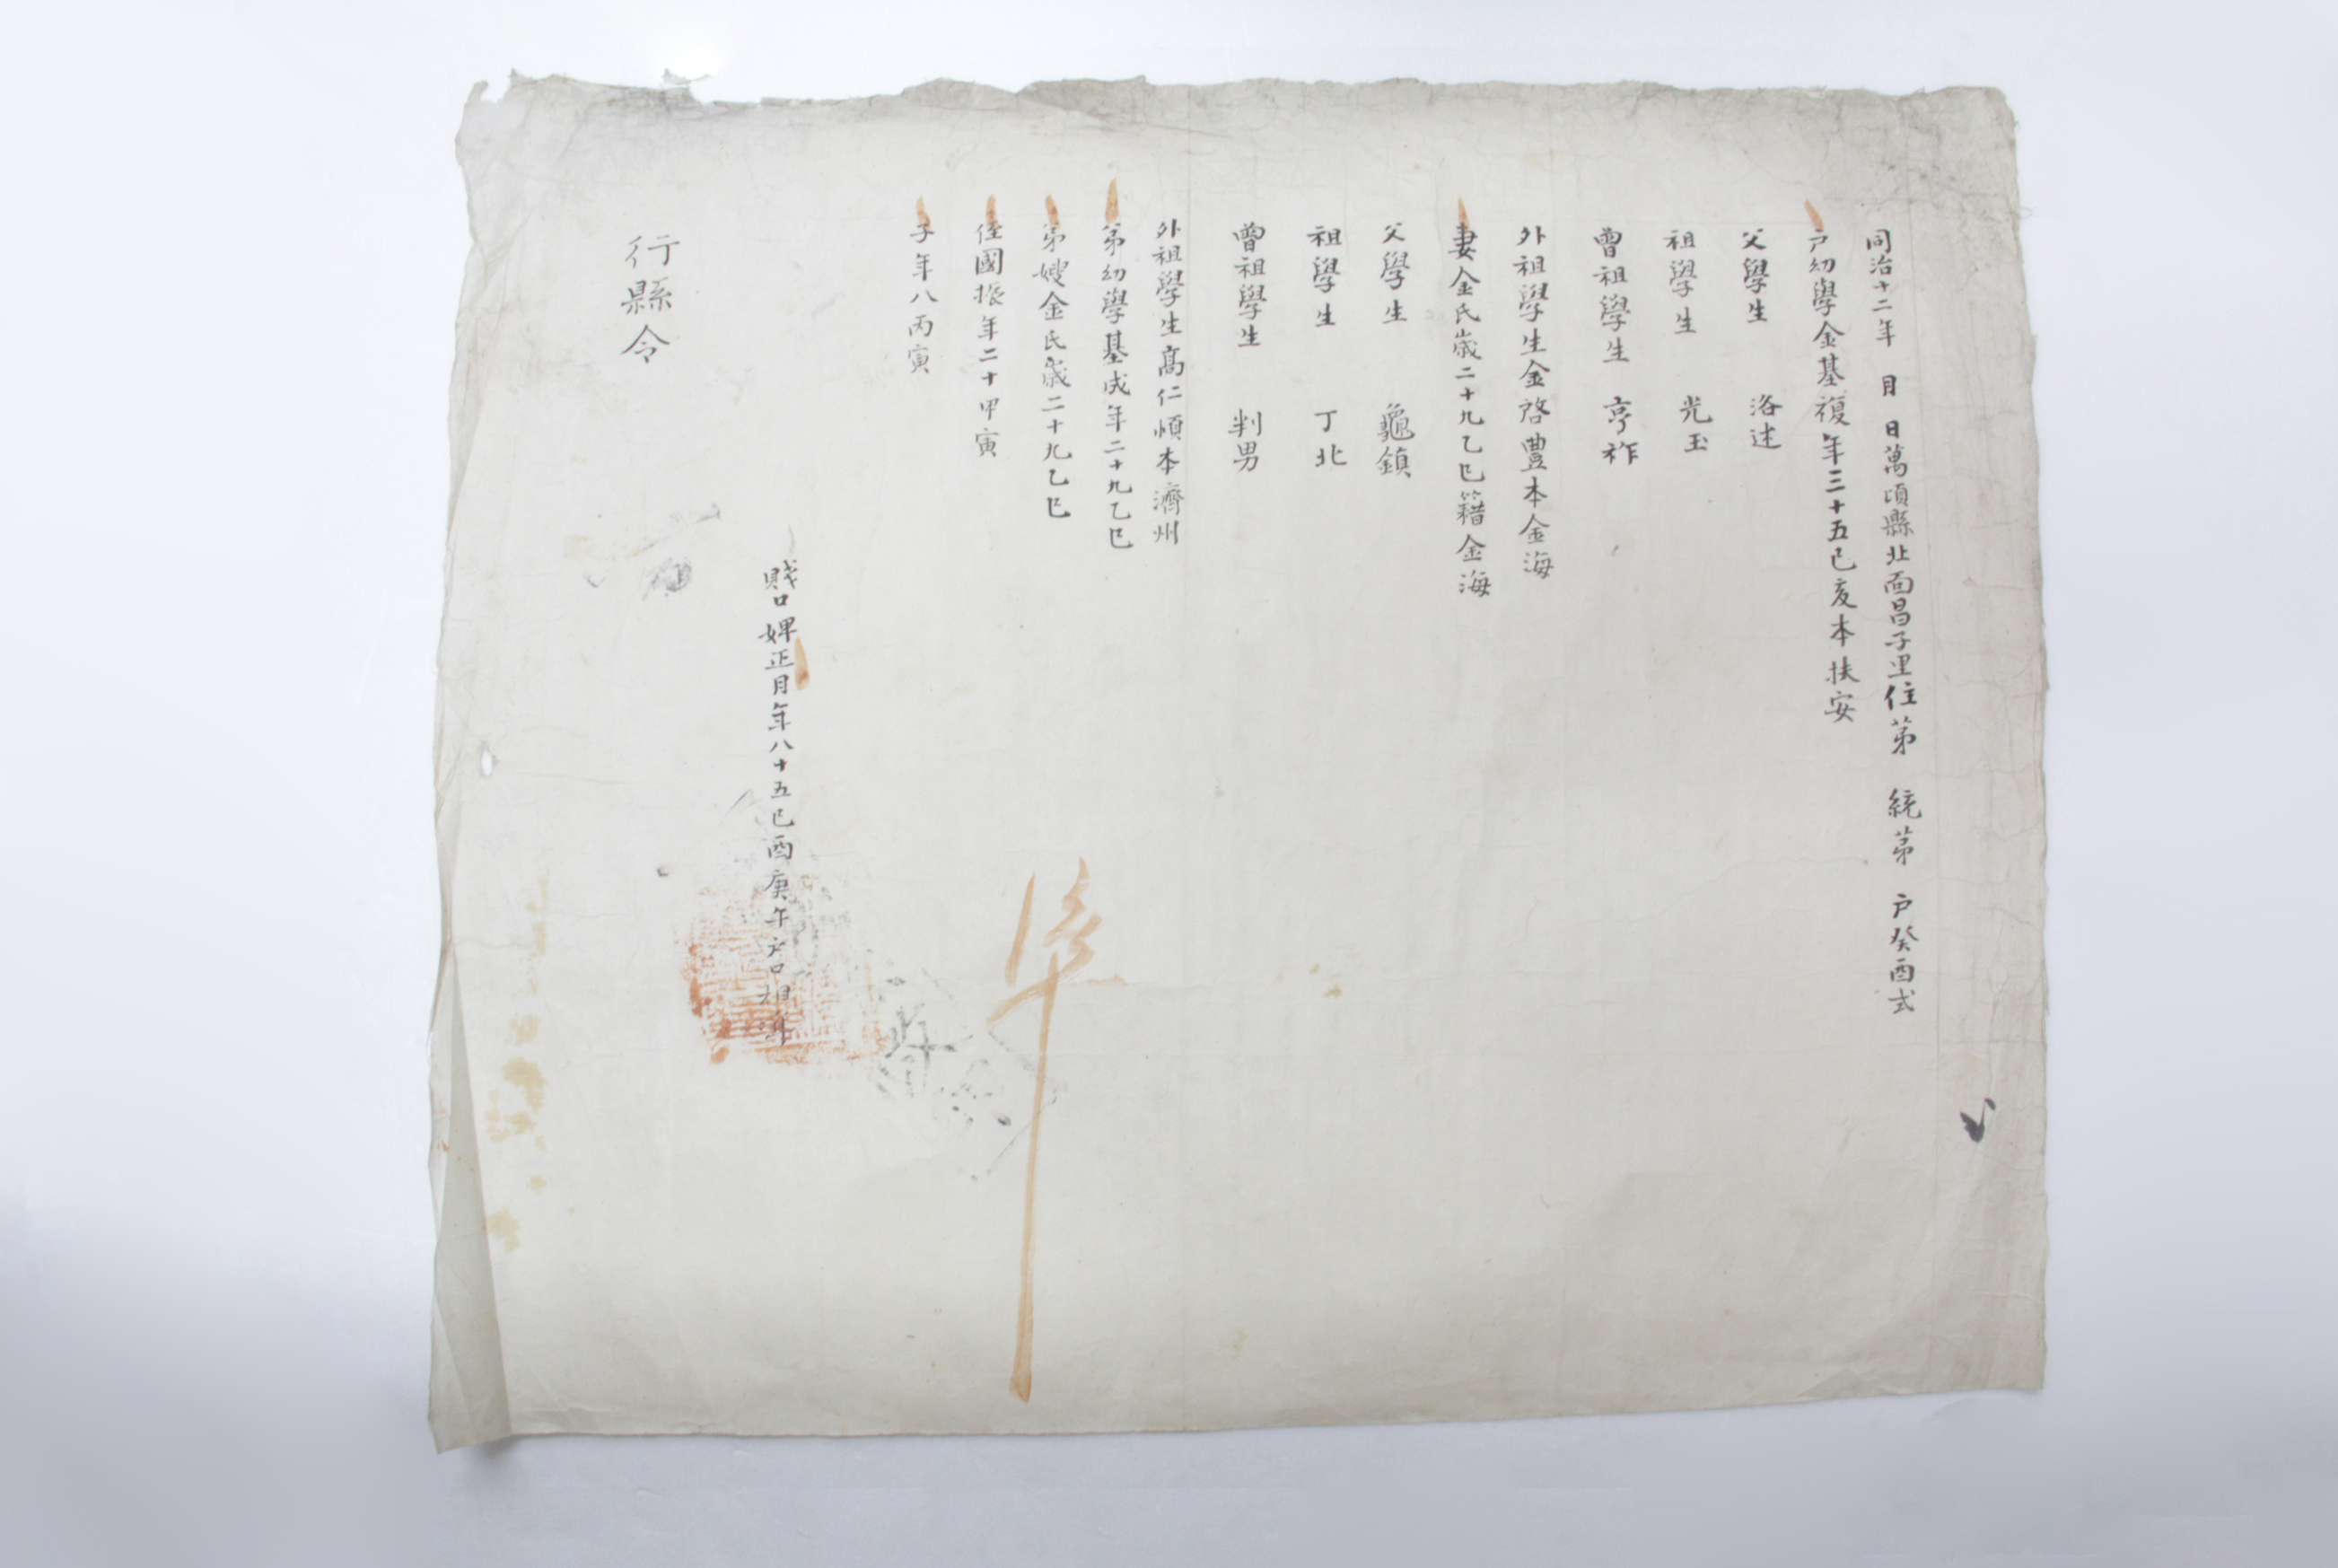 同治十二年 月 日萬頃縣北面昌子里住苐 統苐 戶癸酉式
戶幼學金基複年三十五己亥本扶安
父學生 洛述
祖學生 光玉
曽祖學生 亨祚
外祖學生金啓豊本金海
妻金氏歲二十九乙巳籍金海
父學生 龜鎮
祖學生 丁北
曽祖學生 判男
外祖學生高仁順本濟州
苐幼學基成年二十九乙巳
苐嫂金氏歲二十九乙巳
侄國振年二十甲寅
子年八丙寅
賎口婢正月年八十五己酉庚午戶口相凖
行縣令
凖